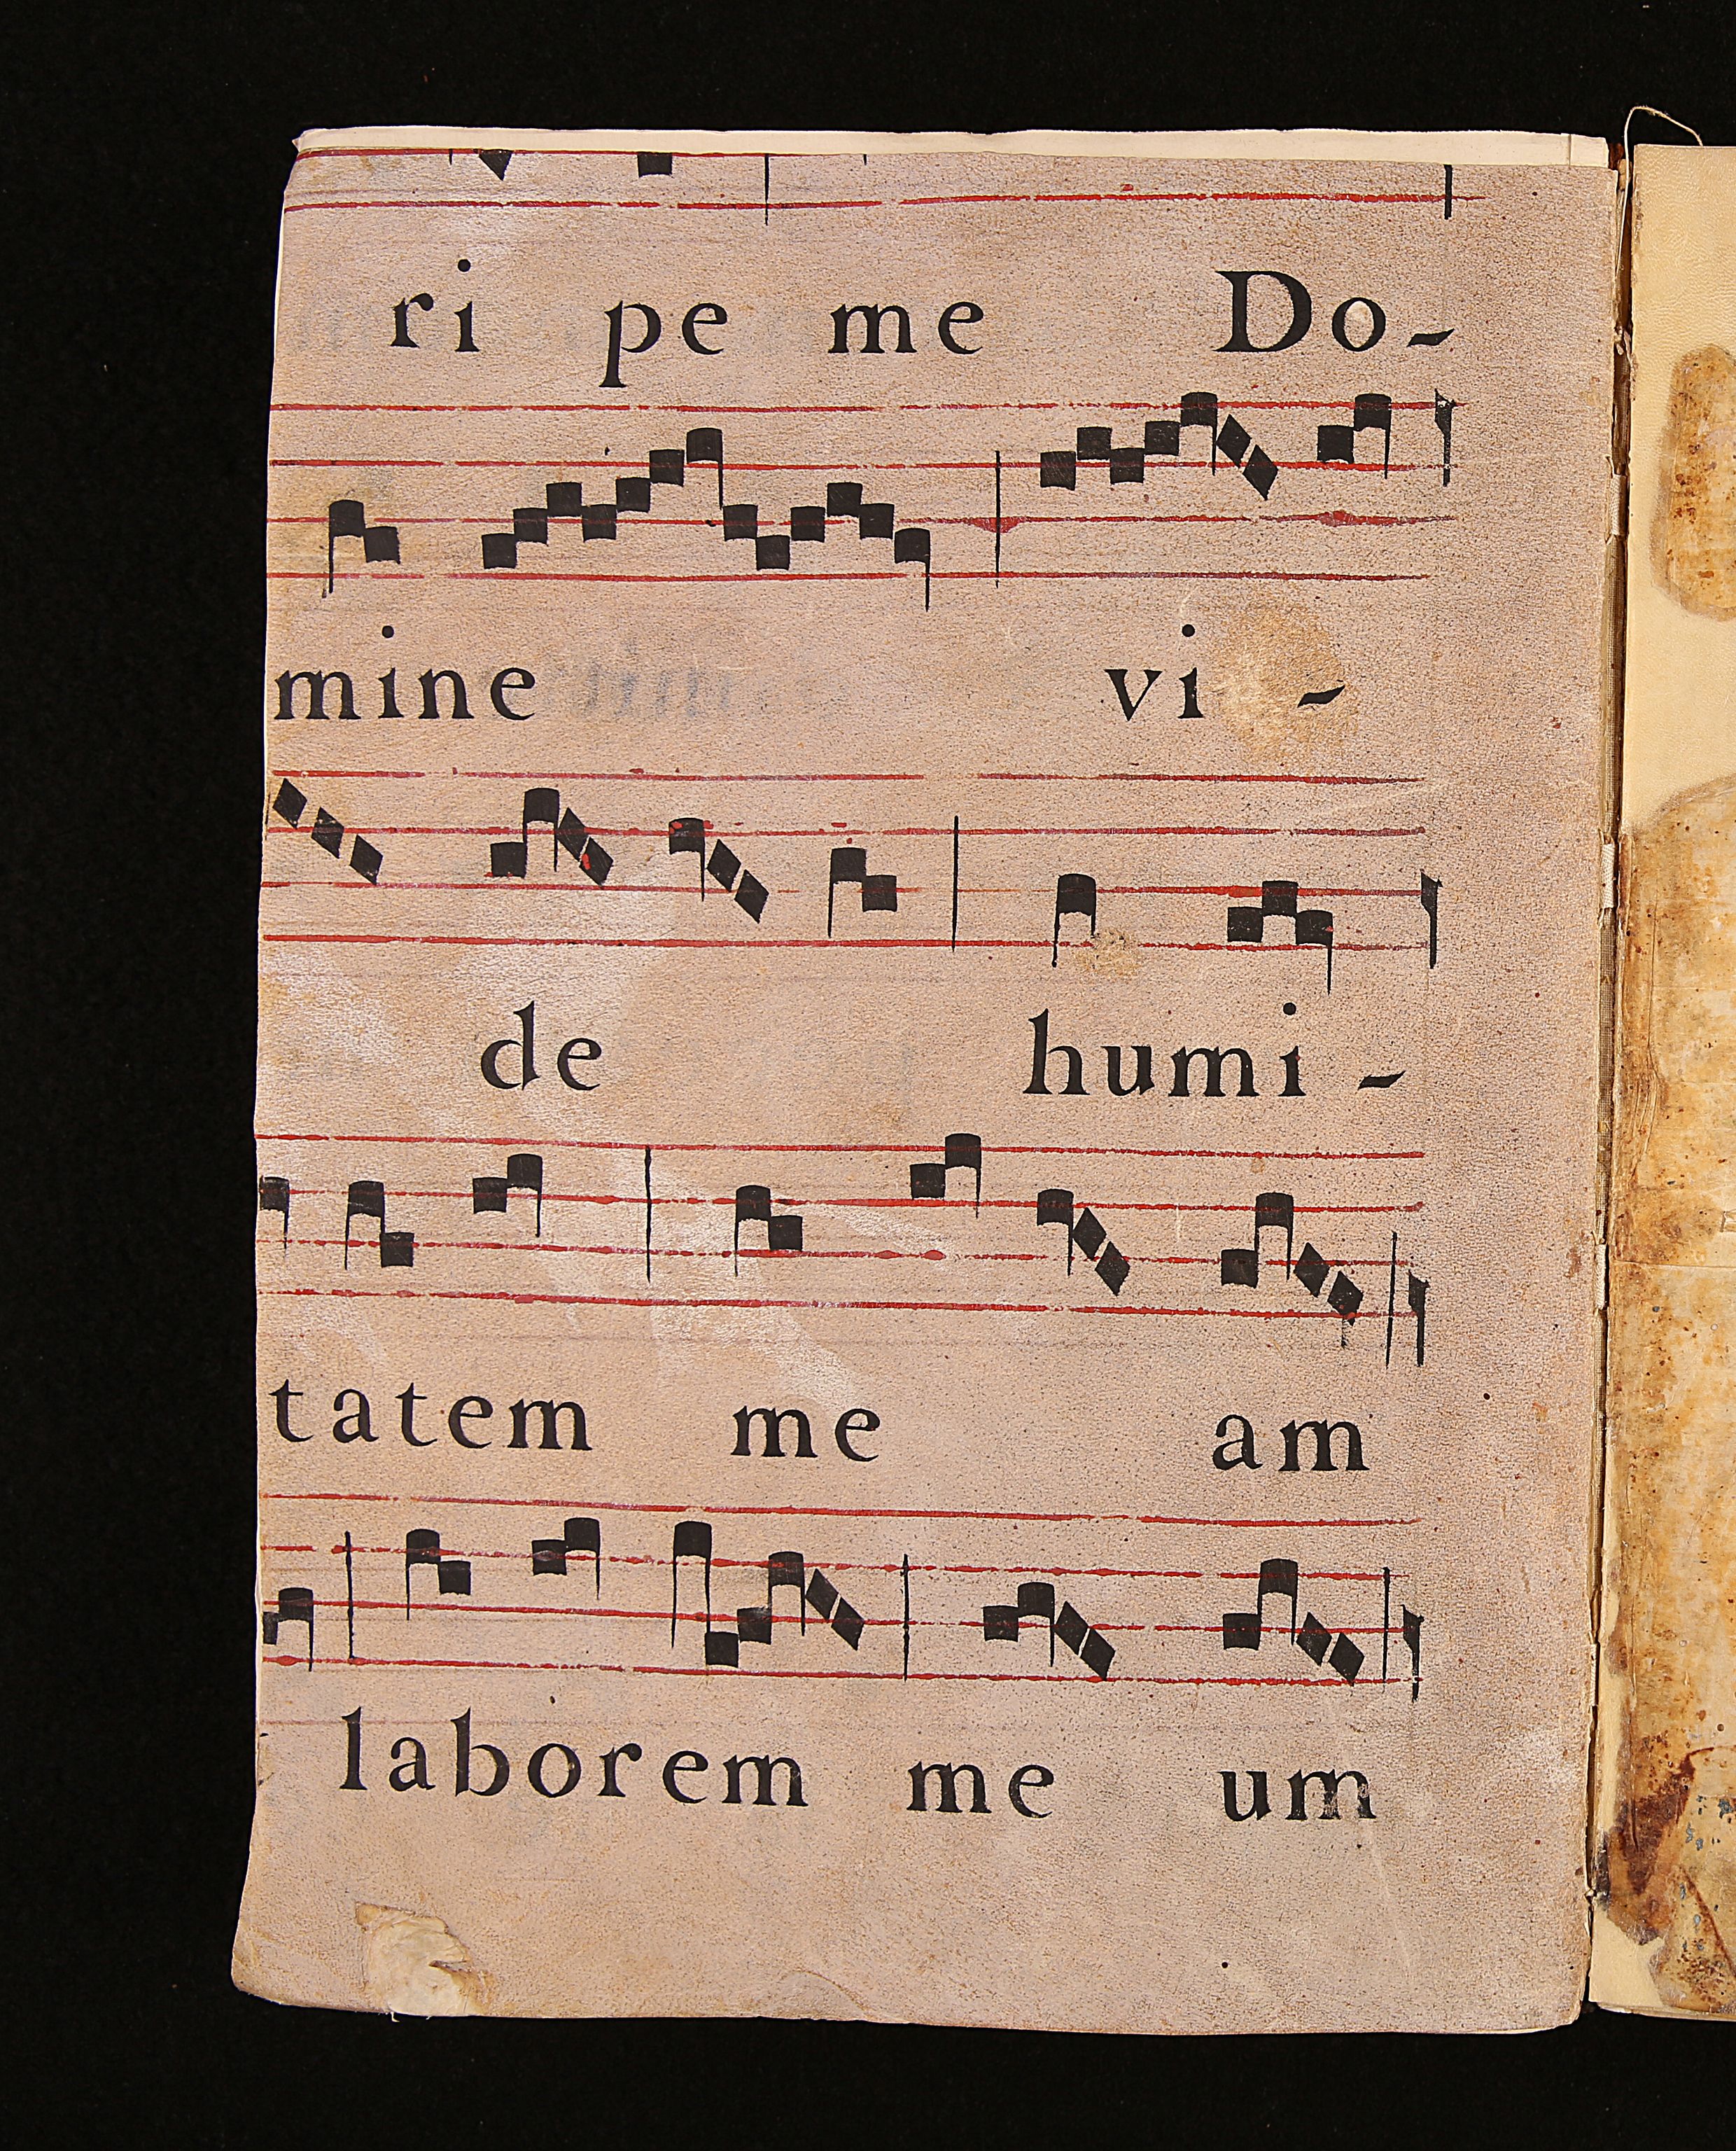 ri pe me Do-
mine vi -
de humi -
tatem me am
laborem me um